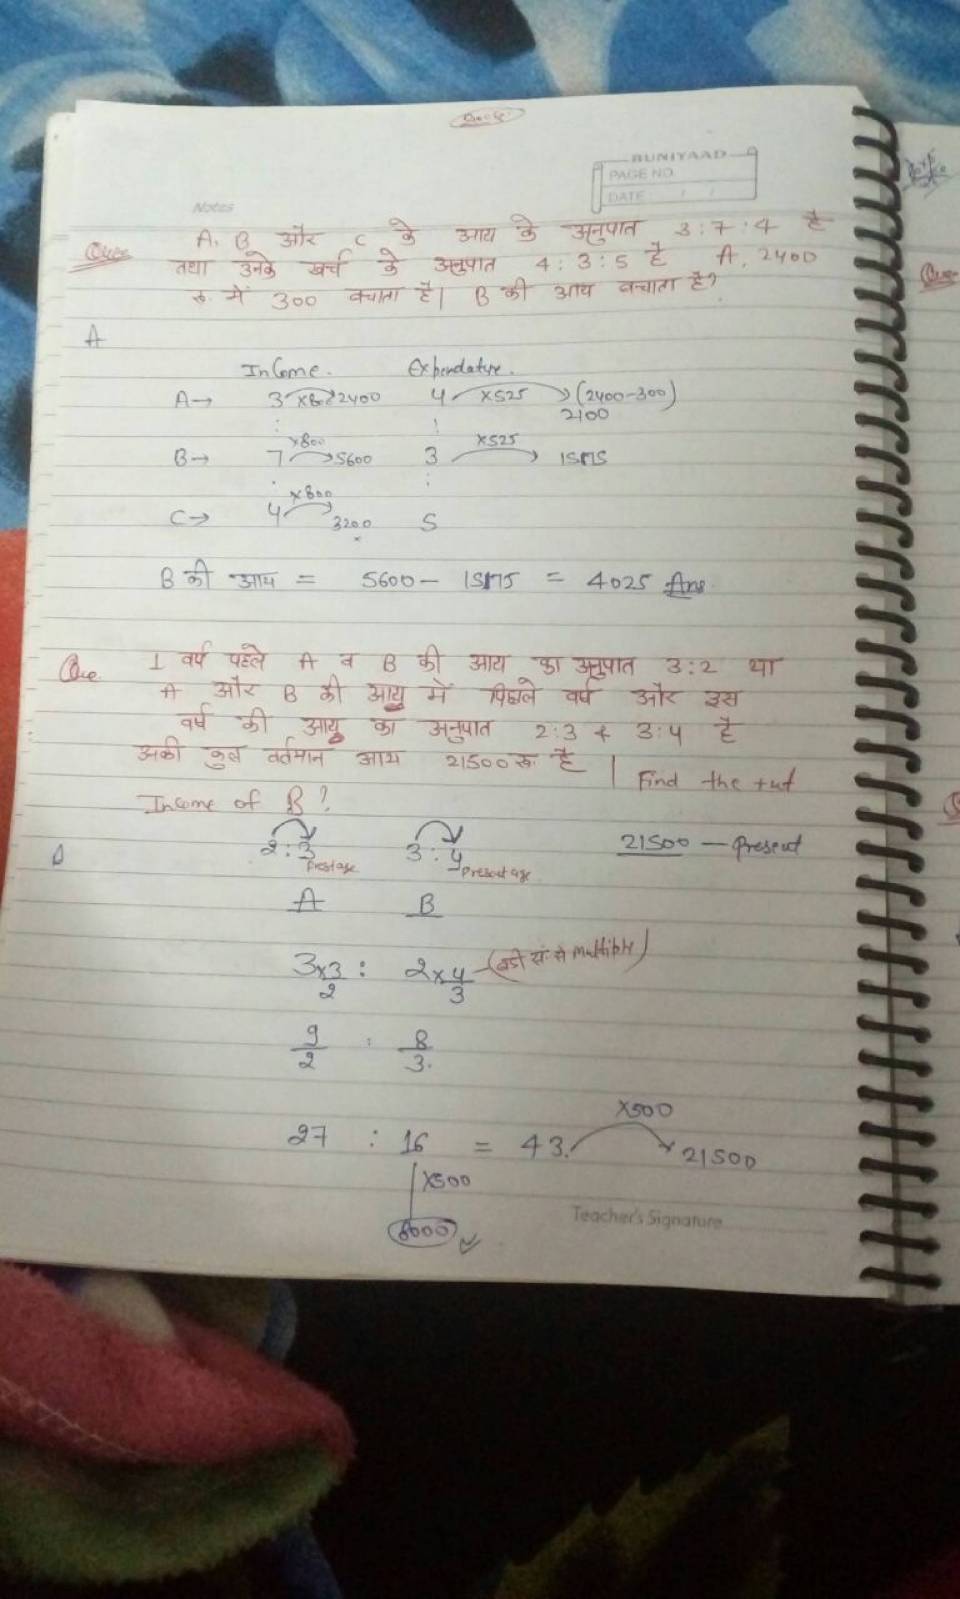 BUNIYAAD
PAGE NO.
DATE: / /
Notes
Que A, B और C के आय के अनुपात 3:7:4 है
तथा उनके खर्च के अनुपात 4:3:5 है A, 2400
रु. में 300 बचाता है| B की आय बचाता है?
A
Income. Expendature.
A→ 3 ×800 2400 4 ×525 (2400-300)
2100
: :
B→ 7 ×800 5600 3 ×525 1575
: :
C→ 4 ×800 3200 5
B की आय = 5600 - 1575 = 4025 Ans
Que. 1 वर्ष पहले A व B की आय का अनुपात 3:2 था
A और B की आयु में पिछले वर्ष और इस
वर्ष की आयु का अनुपात 2:3 & 3:4 है
उनकी कुल वर्तमान आय 21500 रु. है | Find the
Income of B?
2:3 3:4 21500 — Present
Present age
A B
3×3/2 : 2×4/3 (बडी सं. से multiply)
9/2 : 8/3.
27 : 16 = 43. ×500 21500
×500
8000
Teacher's Signature